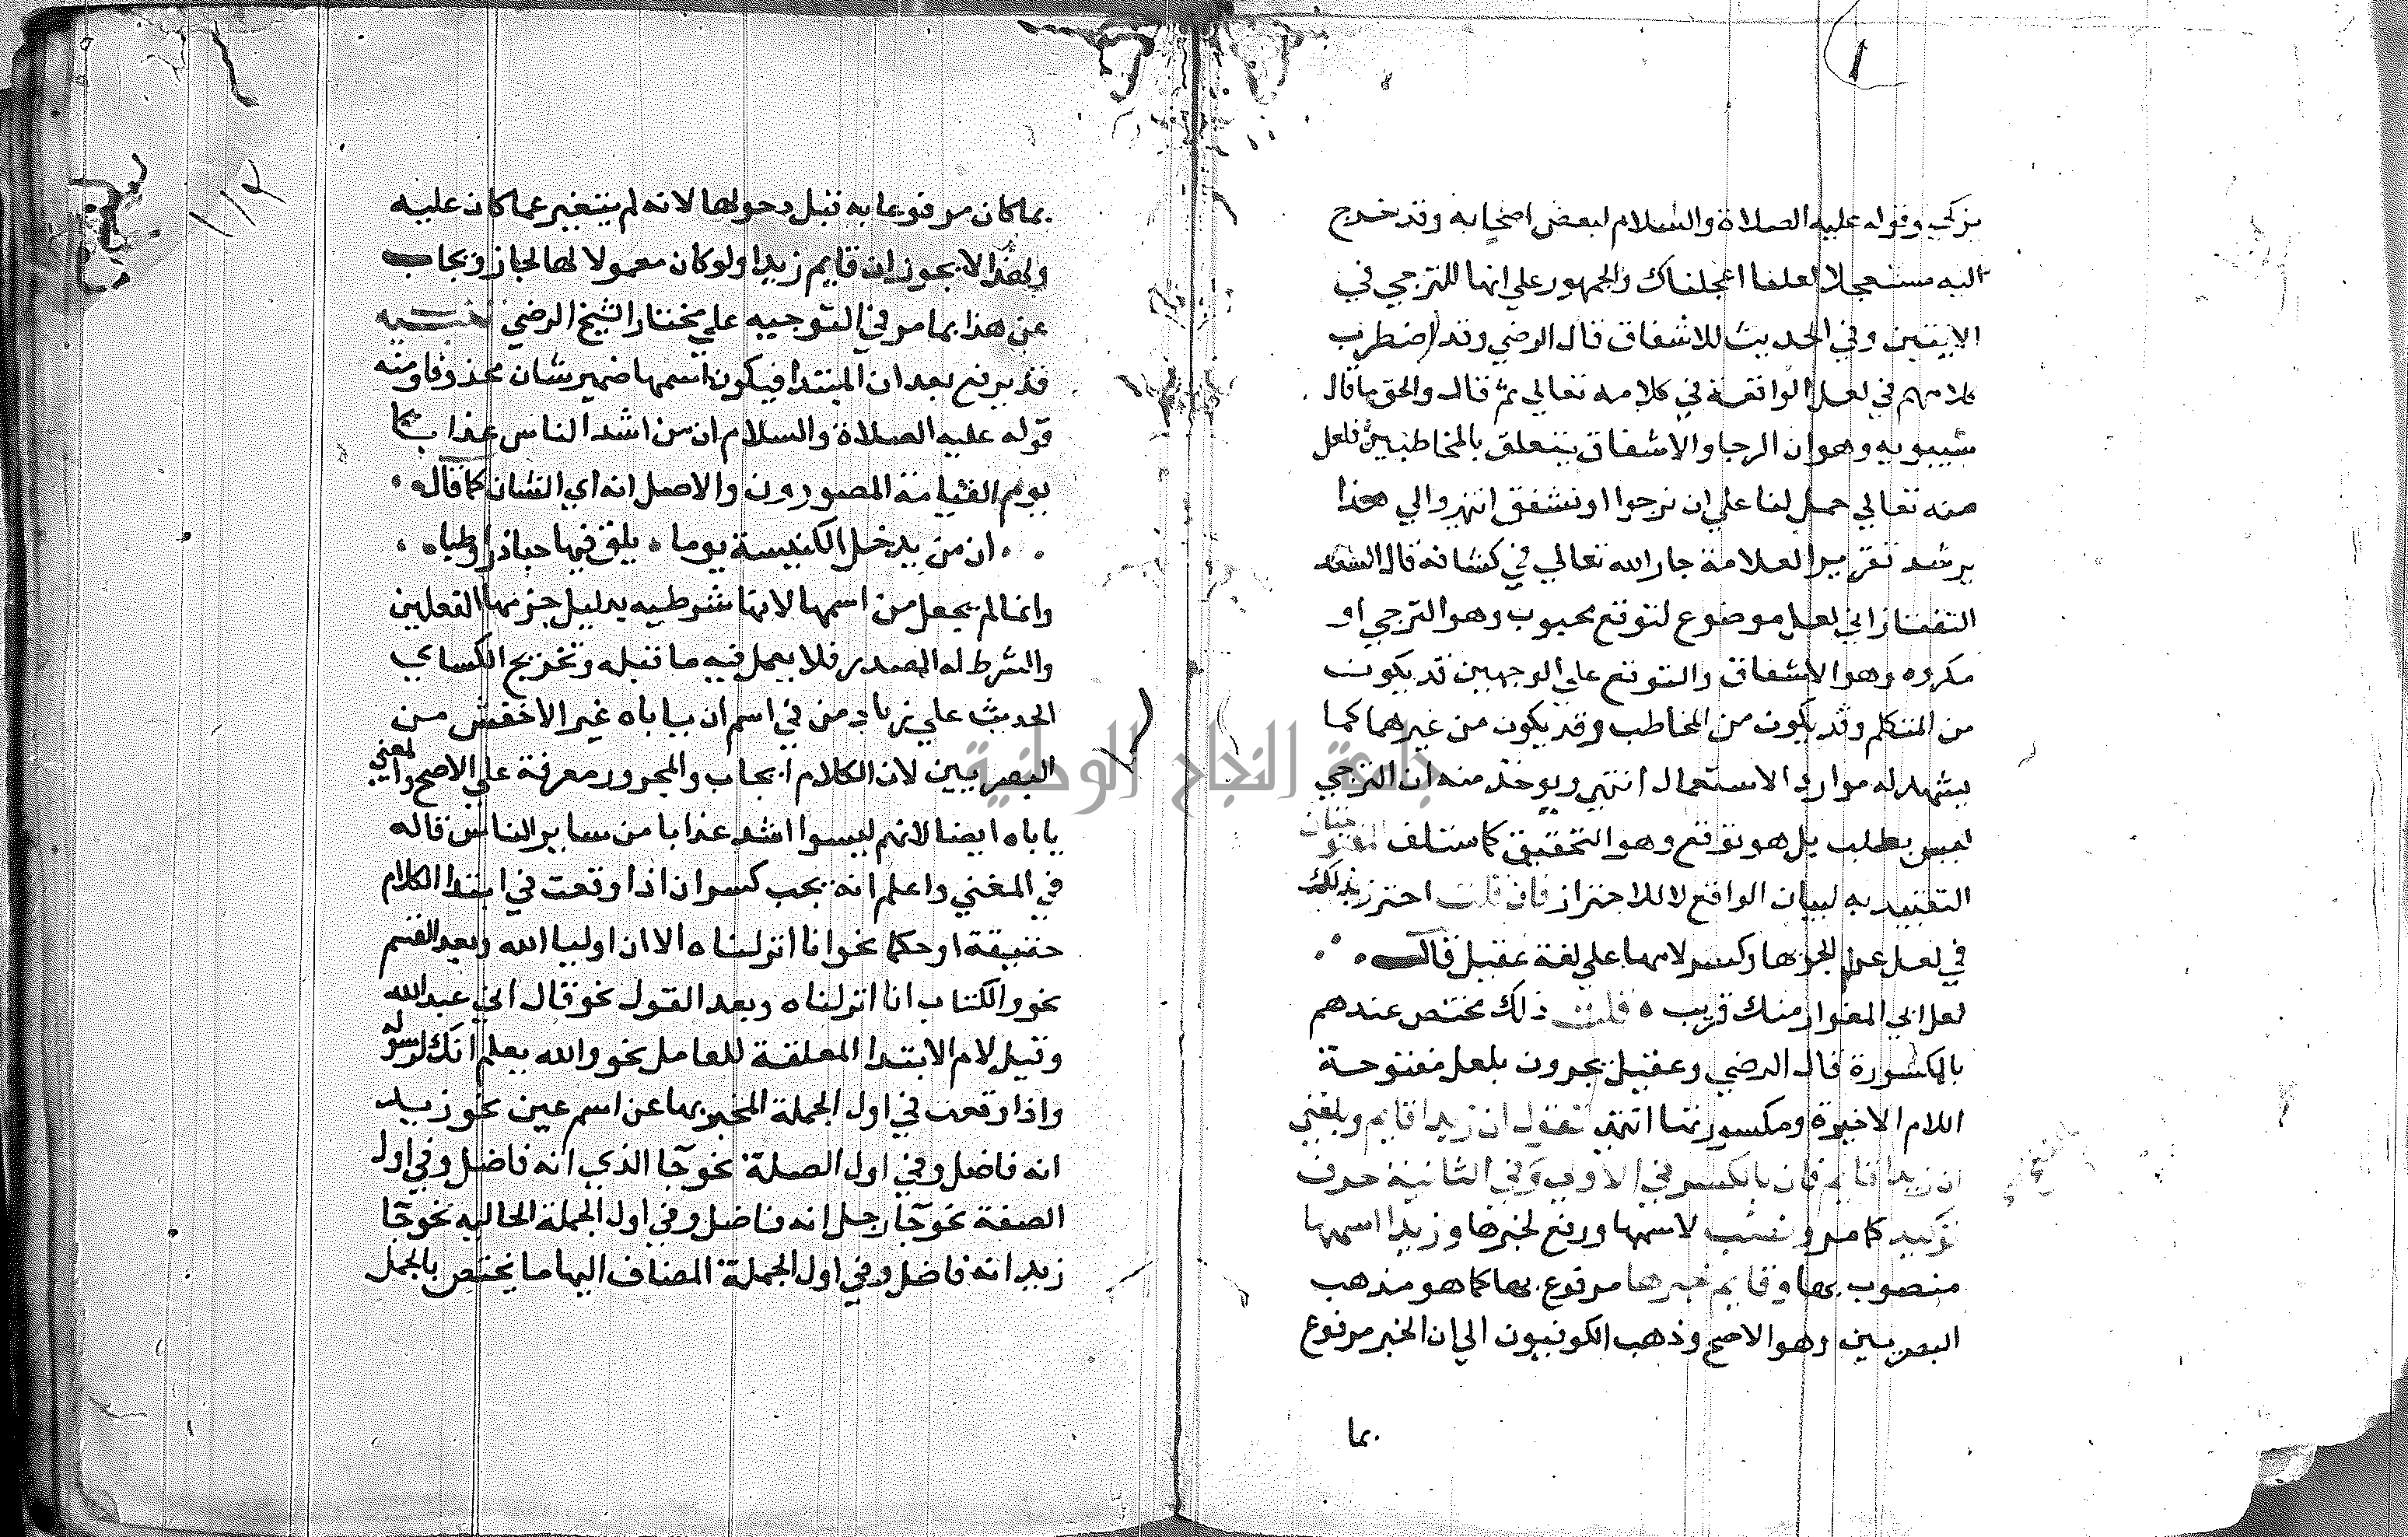 ١
يزكي وقوله عليه الصلاة والسلام لبعض اصحابه وقد خرج
اليه مستعجلا لعلنا اعجلناك والجمهور علي انها للترجي في
الايتين وفي الحديث للاشفاق قال الرضي وقد اضطرب
كلامهم في لعل الواقعة في كلامه تعالي ثم قال والحق ما قال
سيبويه وهو ان الرجا والاشفاق يتعلق بالمخاطبين فلعل
منه تعالي حمل لنا علي ان نرجوا او نشفق انتهي والي هذا
يرشد تقرير العلامة جار الله تعالي في كشافه قال السعد
التفتازاني لعل موضوع لتوقع محبوب وهو الترجي او
مكروه وهو الاشفاق والتوقع علي الوجهين قد يكون
من المتكلم وقد يكون من المخاطب وقد يكون من غيرهما كما
يشهد له موارد الاستعمال انتهي ويوخذ منه ان الترجي
ليس بطلب بل هو توقع وهو التحقيق كما ستلف
التقييد به لبيان الواقع لا للاحتراز فان قلت احترز بذلك
في لعل عن الجر بها وكسر لامها علي لغة عقيل قال
لعل ابي المغوار منك قريب ه قلت ذلك مختص عندهم
بالمكسورة قال الرضي وعقيل يجرون بلعل مفتوحة
اللام الاخيرة ومكسورتها انتهي تقول ان زيدا قايم وبلغني
ان زيدا قايم فان بالكسر في الاولي وفي الثانية حرف
توكيد كما مر و نصب لاسمها ورفع لخبرها وزيدا اسمها
منصوب بها وقايم خبرها مرفوع بها كما هو مذهب
البصريين وهو الاصح وذهب الكوفيون الي ان الخبر مرفوع
بما
١١٢
بما كان مرفوعا به قبل دخولها لانه لم يتغير عما كان عليه
ولهذا لا يجوز ان قايم زيدا ولو كان معمولا لها لجاز ويجاب
عن هذا بما مر في التوجيه علي مختار الشيخ الرضي تنبيه
قد يرفع بعد ان المبتدا فيكون اسمها ضمير شان محذوفا ومنه
قوله عليه الصلاة والسلام ان من اشد الناس عذابا
يوم القيامة المصورون والاصل انه اي الشان كما قال
ان من يدخل الكنيسة يوما ه يلق فيها جباذرا وظباه
وانما لم يجعل من اسمها لانها شرطيه بدليل جزمها الفعلين
والشرط له الصدر فلا يعمل فيه ما قبله وتخريج الكساي
الحديث علي زيادة من في اسم ان ياباه غير الاخفش من
البصريين لان الكلام ايجاب والمجرور معرفة علي الاصح والمعني
ياباه ايضا لانهم ليسوا اشد عذابا من ساير الناس قاله
في المغني واعلم انه يجب كسر ان اذا وقعت في ابتدا الكلام
حقيقة او حكما نحو انا انزلناه الا ان اوليا الله وبعد القسم
نحو والكتاب انا انزلناه وبعد القول نحو قال اني عبد الله
وقبل لام الابتدا المعلقة للعامل نحو والله يعلم انك لرسوله
واذا وقعت في اول الجملة المخبر بها عن اسم عين نحو زيد
انه فاضل وفي اول الصلة نحو جا الذي انه فاضل وفي اول
الصفة نحو جا رجل انه فاضل وفي اول الجملة الحاليه نحو جا
زيد انه فاضل وفي اول الجملة المضاف اليها ما يختص بالجمل
جامعة النجاح الوطنية